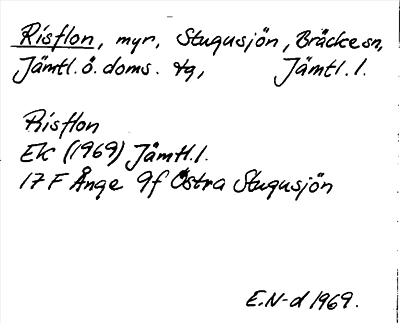 Risflon, myr, Stugusjön, Bräcke sn,
Jämtl. ö. doms. tg, Jämtl. l.
Risflon
EK (1969) Jämtl. l.
17 F Ånge 9f Östra Stugusjön
E. N-d 1969.